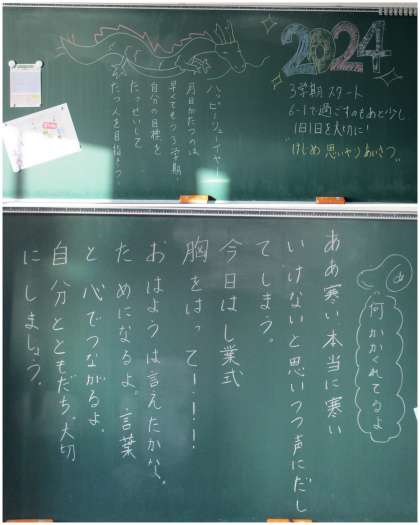 2024
3学期スタート
6-1で過ごすのもあと少し
1日1日を大切に!
けじめ 思いやり あいさつ
ハッピーニューイヤー
月日がたつのは
早くてもう3学期
自分の目標を
たっせいして
だつ人を目指そう
何かかくれてるよ
ああ寒い、本当に寒い
いけないと思いつつ声にだし
てしまう。
今日はし業式
胸をはって!!!
おはようは言えたかな。
ためになるよ。言葉
と心でつながるよ。
自分とともだち。大切
にしましょう。